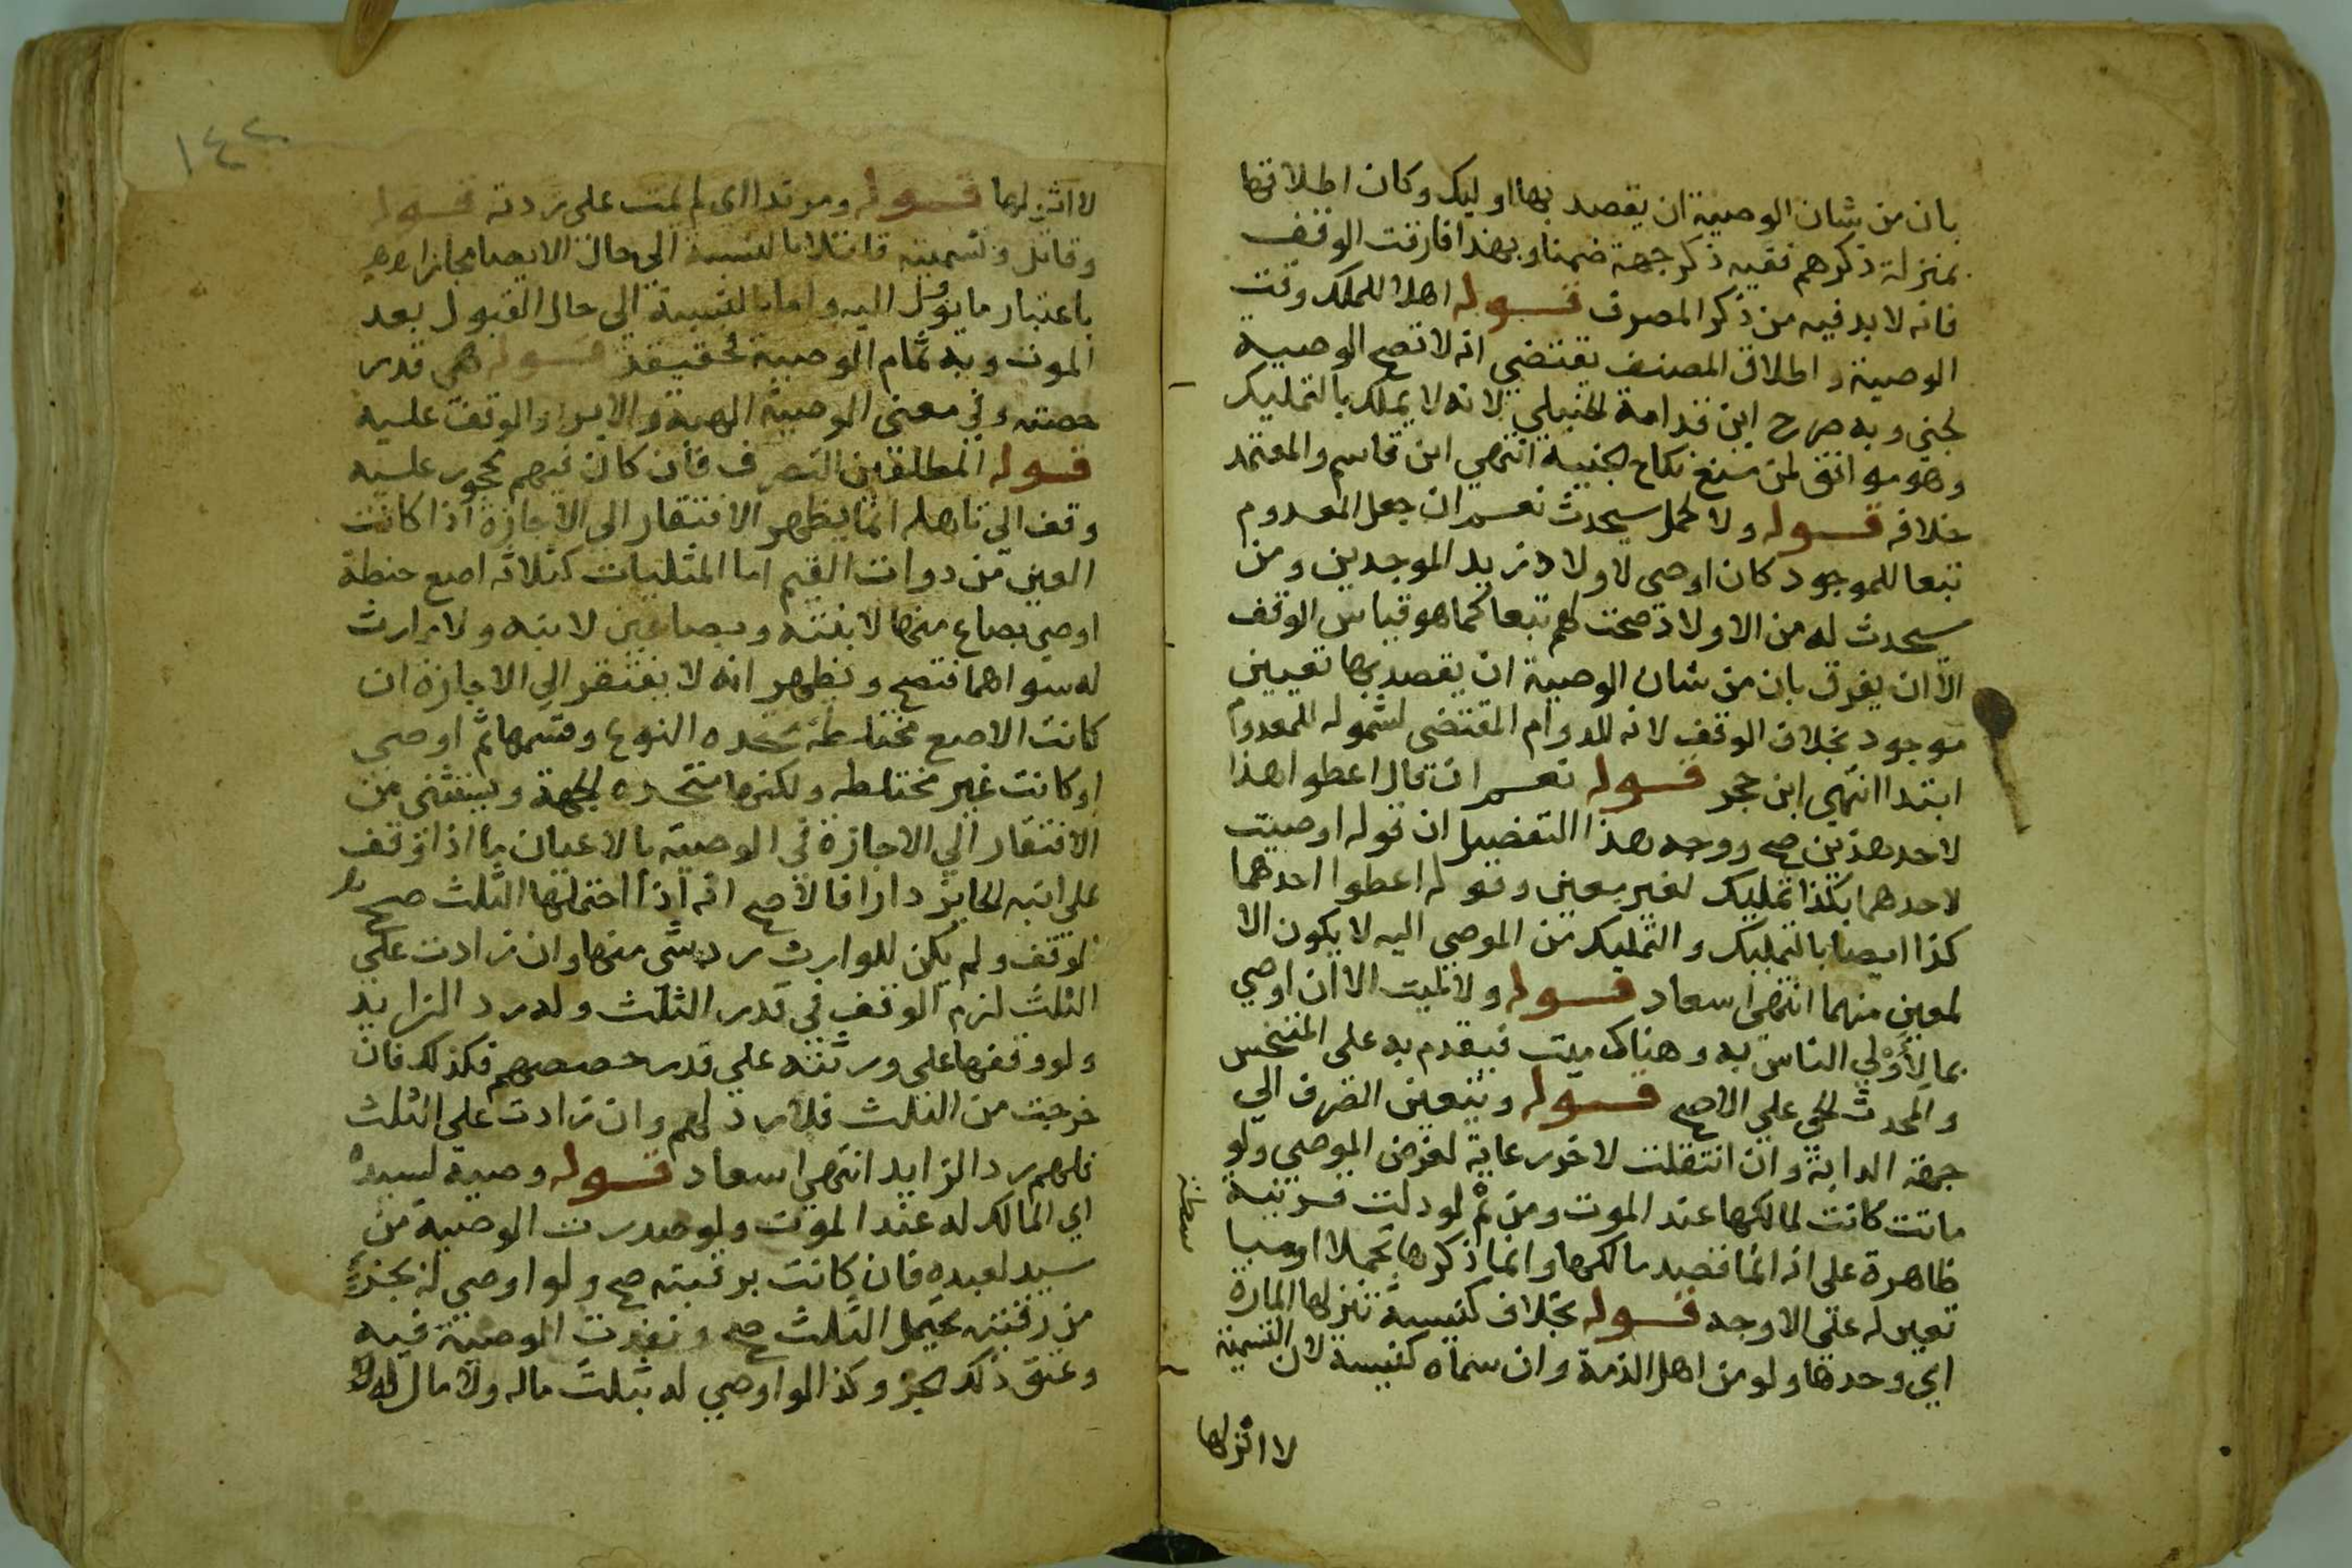 بان من شان الوصية ان يقصد بها اوليك وكان اطلاقها
بمنزلة ذكرهم ففيه ذكر جهة ضمنا وبهذا فارقت الوقف
فانه لابد فيه من ذكر المصرف قوله اهلا للملك وقت
الوصية واطلاق المصنف يقتضي انه لا تصح الوصية
لجني وبه صرح ابن قدامة الحنبلي لانه لا يملك بالتمليك
وهو موافق لمن منع نكاح الجنية انتهي ابن قاسم والمعتمد
خلافه قوله ولا لحمل سيحدث نعم ان جعل المعدوم
تبعا للموجود كان اوصي لاولاد زيد الموجدين ومن
سيحدث له من الاولاد صحت لهم تبعا كما هو قياس الوقف
الا ان يفرق بان من شان الوصية ان يقصد بها تعيين
موجود بخلاف الوقف لانه للدوام المقتضي لشموله للمعدوم
ابتدا انتهي ابن حجر قوله نعم ان قال اعطوا هذا
لاحد هذين صح ووجه هذا التفضيل ان قوله اوصيت
لاحدهما بكذا تمليك لغير معين وقوله اعطوا احدهما
كذا ايصا بالتمليك والتمليك من الموصي اليه لا يكون الا
لمعين منهما انتهي اسعاد قوله ولا لميت الا ان اوصي
بما لأولي الناس به وهناك ميت فيقدم به على المتنجس
والمحدث الحي على الاصح قوله ويتعين الصرف الي
جهة الدابة وان انتقلت لاخر رعاية لغرض الموصي ولو
ماتت كانت لمالكها عند الموت ومن ثم لو دلت قرينة
ظاهرة على انه انما قصد مالكها وانما ذكرها تجملا او مباسطة
تعين له على الاوجه قوله بخلاف كنيسة تنزلها المارة
اي وحدها ولو من اهل الذمة وان سماه كنيسة لان التسمية
لا اثر لها
١٤٢
لا اثر لها قوله ومرتدا اي لم يمت على ردته قوله
وقاتل وتسميته قاتلا بالنسبة الي حال الايصا مجاز
باعتبار ما يؤل اليه واما بالنسبة الي حال القبول بعد
الموت وبه تمام الوصية فحقيقة قوله هي قدر
حصته وفي معنى الوصية الهبة والابرا والوقف عليه
قوله المطلقين التصرف فان كان فيهم محجور عليه
وقف الي تاهله انما يظهر الافتقار الي الاجازة اذا كانت
العين من دوات القيم اما المثليات كثلاثه اصع حنطة
اوصي بصاع منها لابنته وبصاعين لابنه ولا وارث
له سواهما فتصح ويظهر انه لا يفتقر الي الاجازة ان
كانت الاصع مختلطة متحده النوع وقسمها ثم اوصي
او كانت غير مختلطه ولكنها متحده الجهة ويستثني من
الافتقار الي الاجازة في الوصية بالاعيان ما اذا وقف
على ابنه الحايز دارا فالاصح انه اذا احتملها الثلث صح
لوقف ولم يكن للوارث رد شي منها وان زادت علي
الثلث لزم الوقف في قدر الثلث وله رد الزايد
ولو وقفها على ورثته على قدر حصصهم فكذلك فان
خرجت من الثلث فلا رد لهم وان زادت على الثلث
فلهم رد الزايد انتهي اسعاد قوله وصية لسيده
اي المالك له عند الموت ولو صدرت الوصية من
سيد لعبده فان كانت برقبته صح ولو اوصي له بجزء
من رقبته يحتمل الثلث صح ونفدت الوصية فيه
وعتق ذلك الجزء وكذا لو اوصي له بثلث ماله ولا مال له